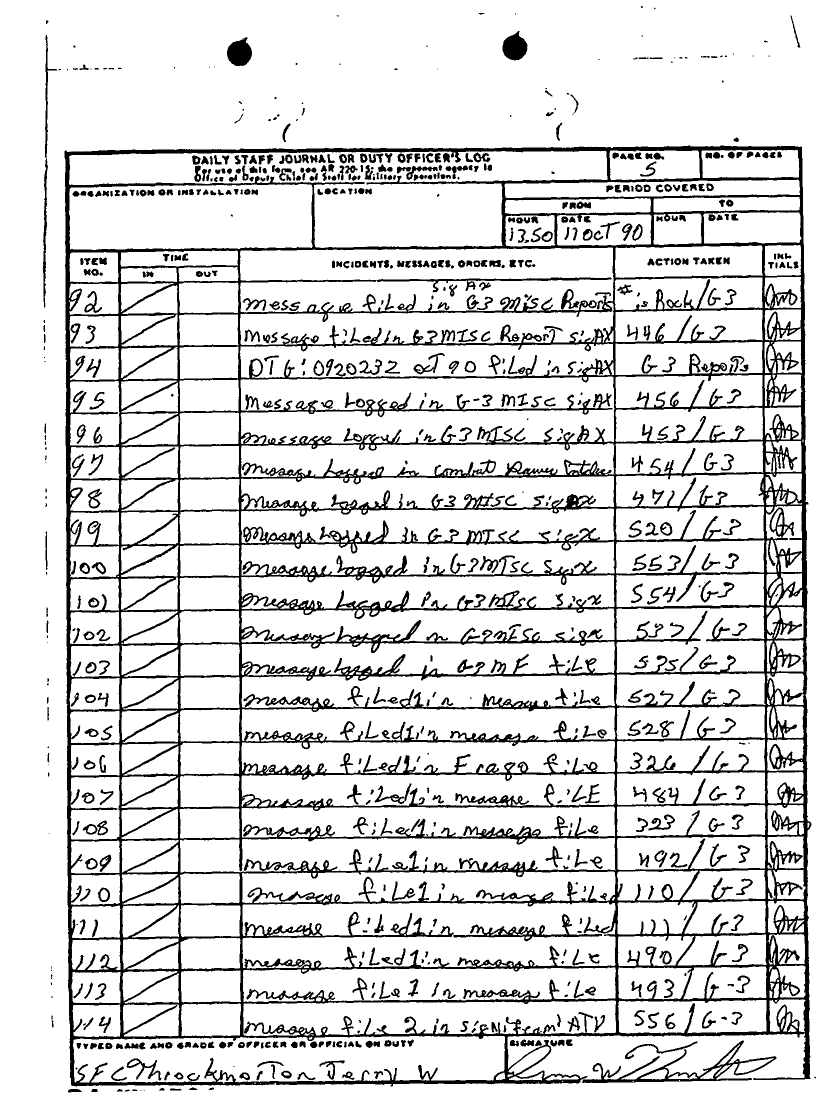 DAILY STAFF JOURNAL OR DUTY OFFICER'S LOG
For use of this form, see AR 220-15; the proponent agency is
Office of Deputy Chief of Staff for Military Operations.
PAGE NO.
5
NO. OF PAGES
ORGANIZATION OR INSTALLATION
LOCATION
PERIOD COVERED
FROM
TO
HOUR
DATE
HOUR
DATE
1350
11 OCT 90
ITEM NO.
TIME
IN
OUT
INCIDENTS, MESSAGES, ORDERS, ETC.
ACTION TAKEN
INI-TIALS
92 message filed in Sig Ax G3 MISC Reports # is Rock/G3
93 Message filed in G3 MISC Report sigAX 446/G3
94 DTG: 092023Z oct 90 filed in sigAX G3 Reports
95 Message Logged in G-3 MISC SigAX 456/G3
96 message Logged in G3 MISC sigAX 453/G3
97 message Logged in combat 454/G3
98 Message Logged in G3 MISC sigax 471/G3
99 message Logged in G3 MISC sigx 520/G3
100 message Logged in G3 MISC sigx 553/G3
101 message Logged in G3 MISC sigx 554/G3
102 message Logged in G3 MISC sigx 537/G3
103 message Logged in G3 MF file 535/G3
104 message filed1in message file 527/G3
105 message filed1in message file 528/G3
106 message filed1in Frago file 326/G3
107 message filed1in message file 484/G3
108 message filed1in message file 323/G3
109 message file1in message file 492/G3
110 message file1in message filed 110/G3
111 message filed1in message filed 111/G3
112 message filed1in message file 490/G3
113 message file 1 in message file 493/G-3
114 message file 2 in ATV 556/G-3
TYPED NAME AND GRADE OF OFFICER OR OFFICIAL ON DUTY
SIGNATURE
SFC Throckmorton Jerry W